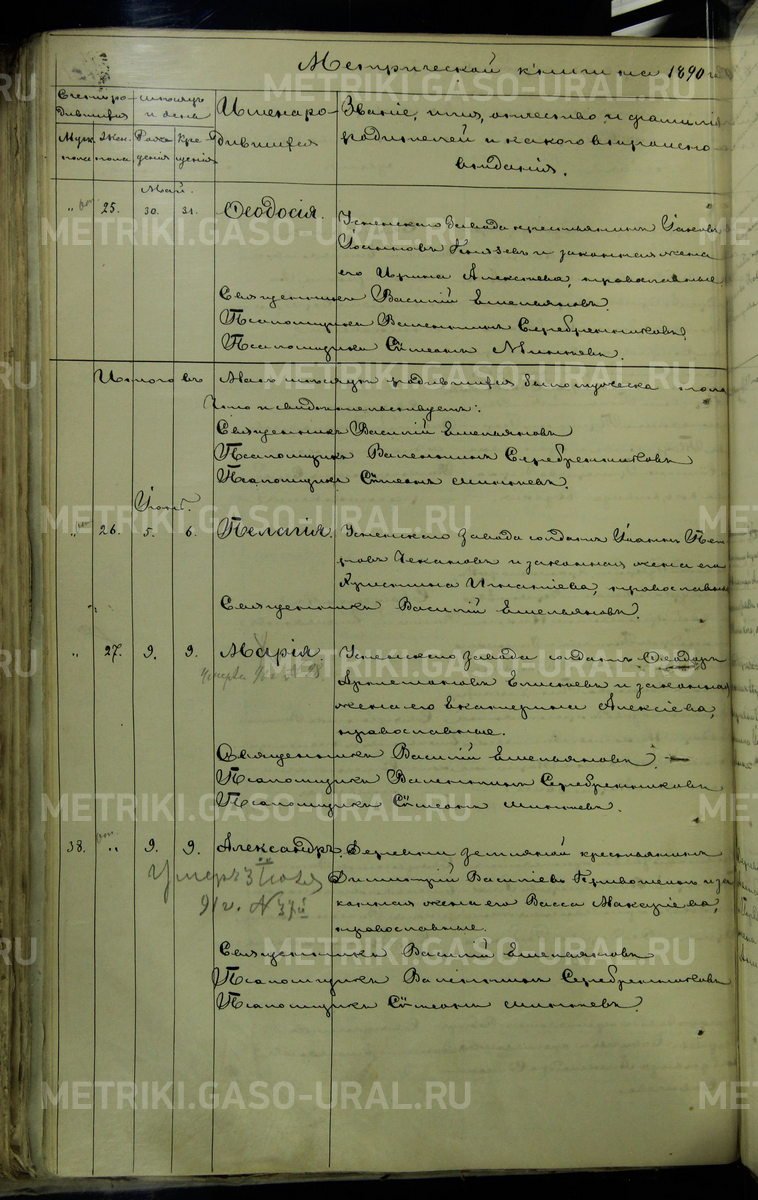 Метрической книги на 1890 г
Счет родившихся
Муж. пола
Жен. пола
Месяц и день
Рождения
Крещения
Имена родившихся
Званіе, имя, отчество и фамилія
родителей и какого вѣроисповѣданія.
Май.
" 25. 30. 31. Ѳеодосія. Успенскаго Завода крестьянинъ Іаковъ
Іоанновъ Князевъ и законная жена
его Ирина Алексѣева, православные
Священникъ Василій Емельяновъ.
Псаломщикъ Валентинъ Серебренниковъ.
Псаломщикъ Стефанъ Минѣевъ.
Итого въ Маѣ мѣсяцѣ родившихся было мужеска пола
Что и свидѣтельствуемъ:
Священникъ Василій Емельяновъ
Псаломщикъ Валентинъ Серебренниковъ
Псаломщикъ Стефанъ Минѣевъ.
Іюнь.
" 26. 5. 6. Пелагія. Успенскаго Завода солдатъ Іоаннъ Пет-
ровъ Чекановъ и законная жена его
Христина Игнатіева, православные
Священникъ Василій Емельяновъ.
" 27. 9. 9. Марія. Успенскаго Завода солдатъ Ѳеодоръ
Артемоновъ Елисѣевъ и законная
жена его Екатерина Алексіева,
православные.
Священникъ Василій Емельяновъ.
Псаломщикъ Валентинъ Серебренниковъ
Псаломщикъ Стефанъ Минѣевъ.
38. " 9. 9. Александръ. Деревни Земляной крестьянинъ
Умеръ 3 Іюля
Димитрій Василіевъ и за-
91 г. № 37
конная жена его Васса Макаріева,
православные.
Священникъ Василій Емельяновъ
Псаломщикъ Валентинъ Серебренниковъ
Псаломщикъ Стефанъ Минѣевъ.
METRIKI.GASO-URAL.RU